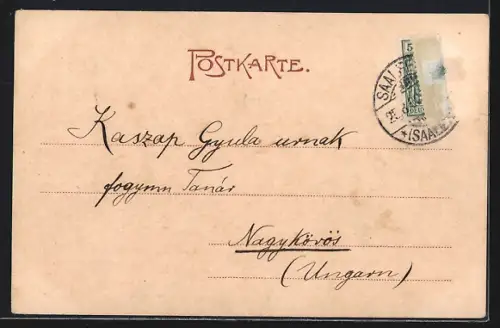 POSTKARTE.
5
SAAL
25
*(SAALE
Kaszap Gyula urnak
fogymn Tanár
Nagykőrös
(Ungarn)